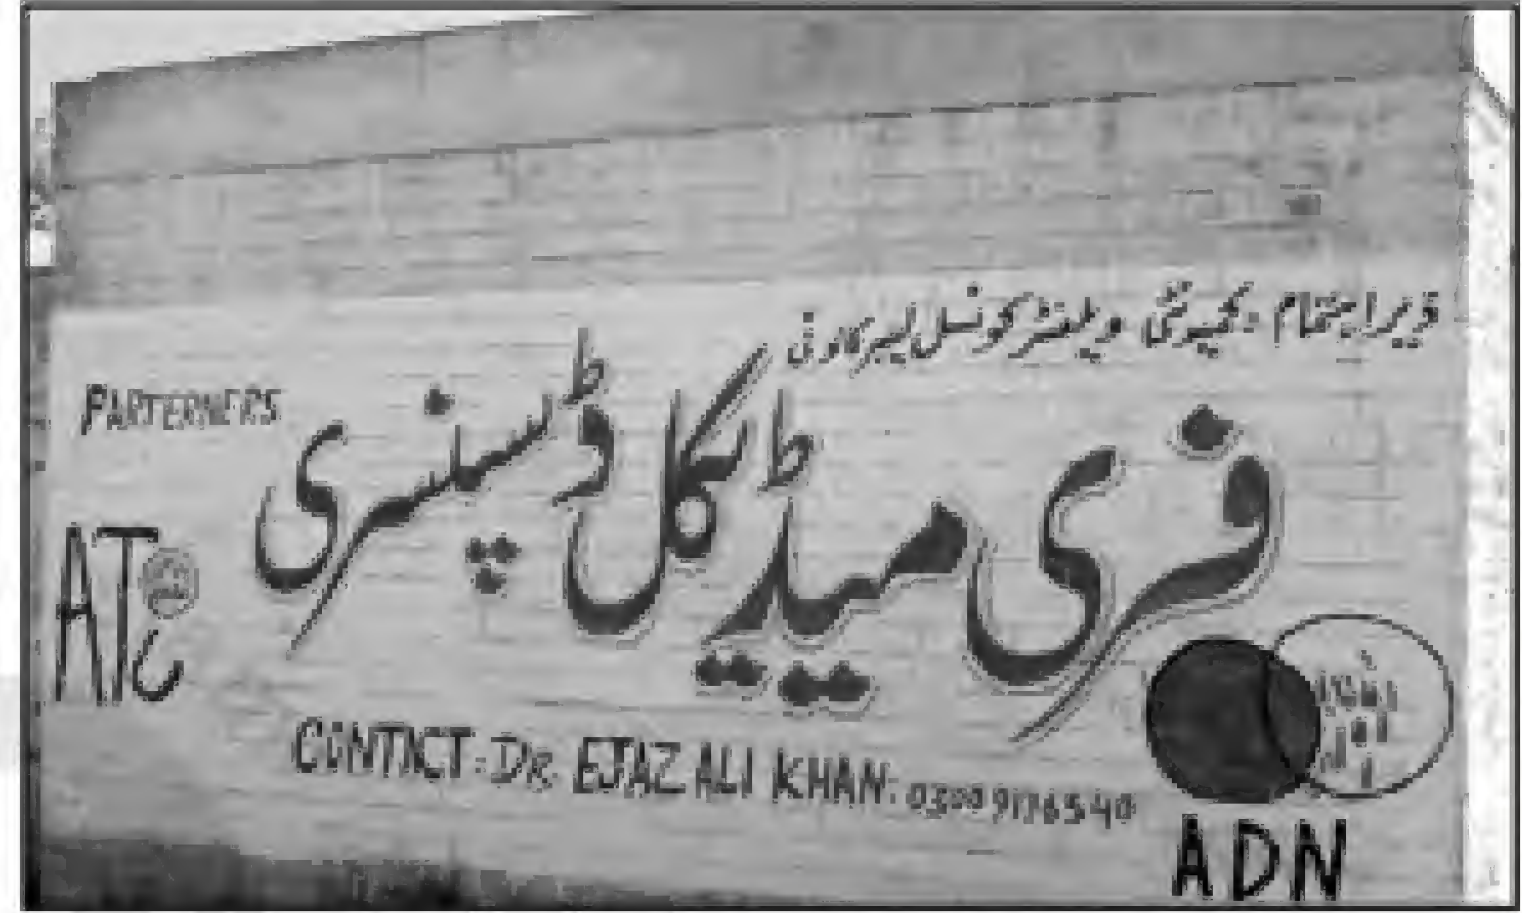 زیر اہتمام کمیونٹی ویلفئر کونسل لیبر کالونی
PARTERNERS
فری میڈیکل ڈسپنسری
AT
CONTACT: DR EJAZ ALI KHAN:
ADN